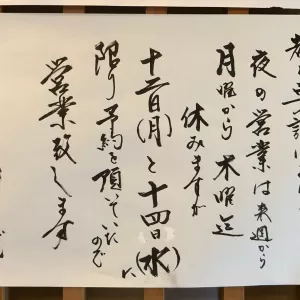 夜の営業は来週から
月曜から木曜迄
休みますが
十二日(月)と十四日(水)に
限り予約を頂いていたので
営業致します